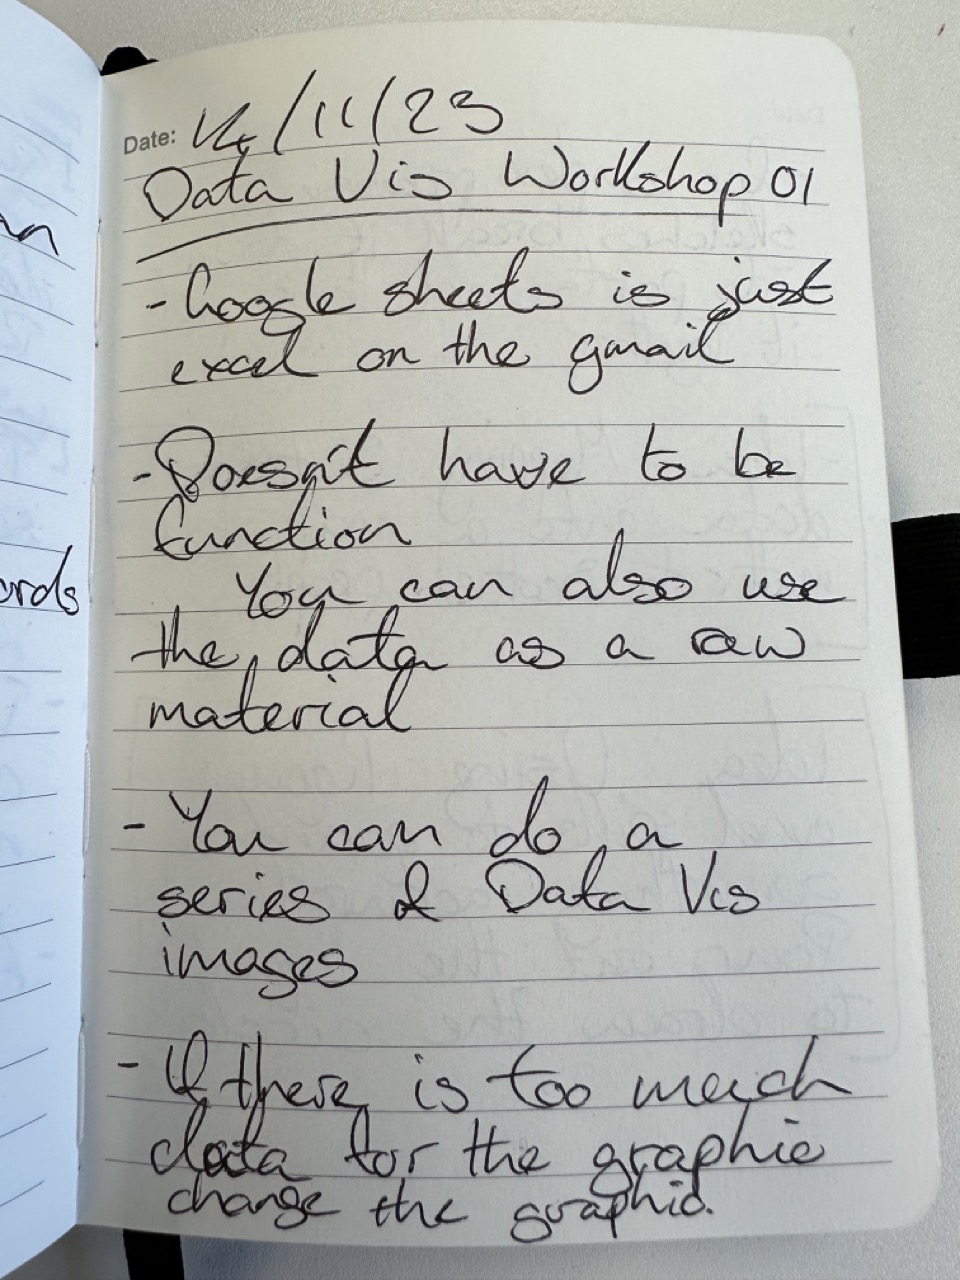 an
ords
Date: 14/11/23
Data Vis Workshop 01
- Google sheets is just
excel on the gmail
- Doesn't have to be
function
You can also use
the data as a raw
material
- You can do a
series of Data Vis
images
- If there is too much
data for the graphic
change the graphic.